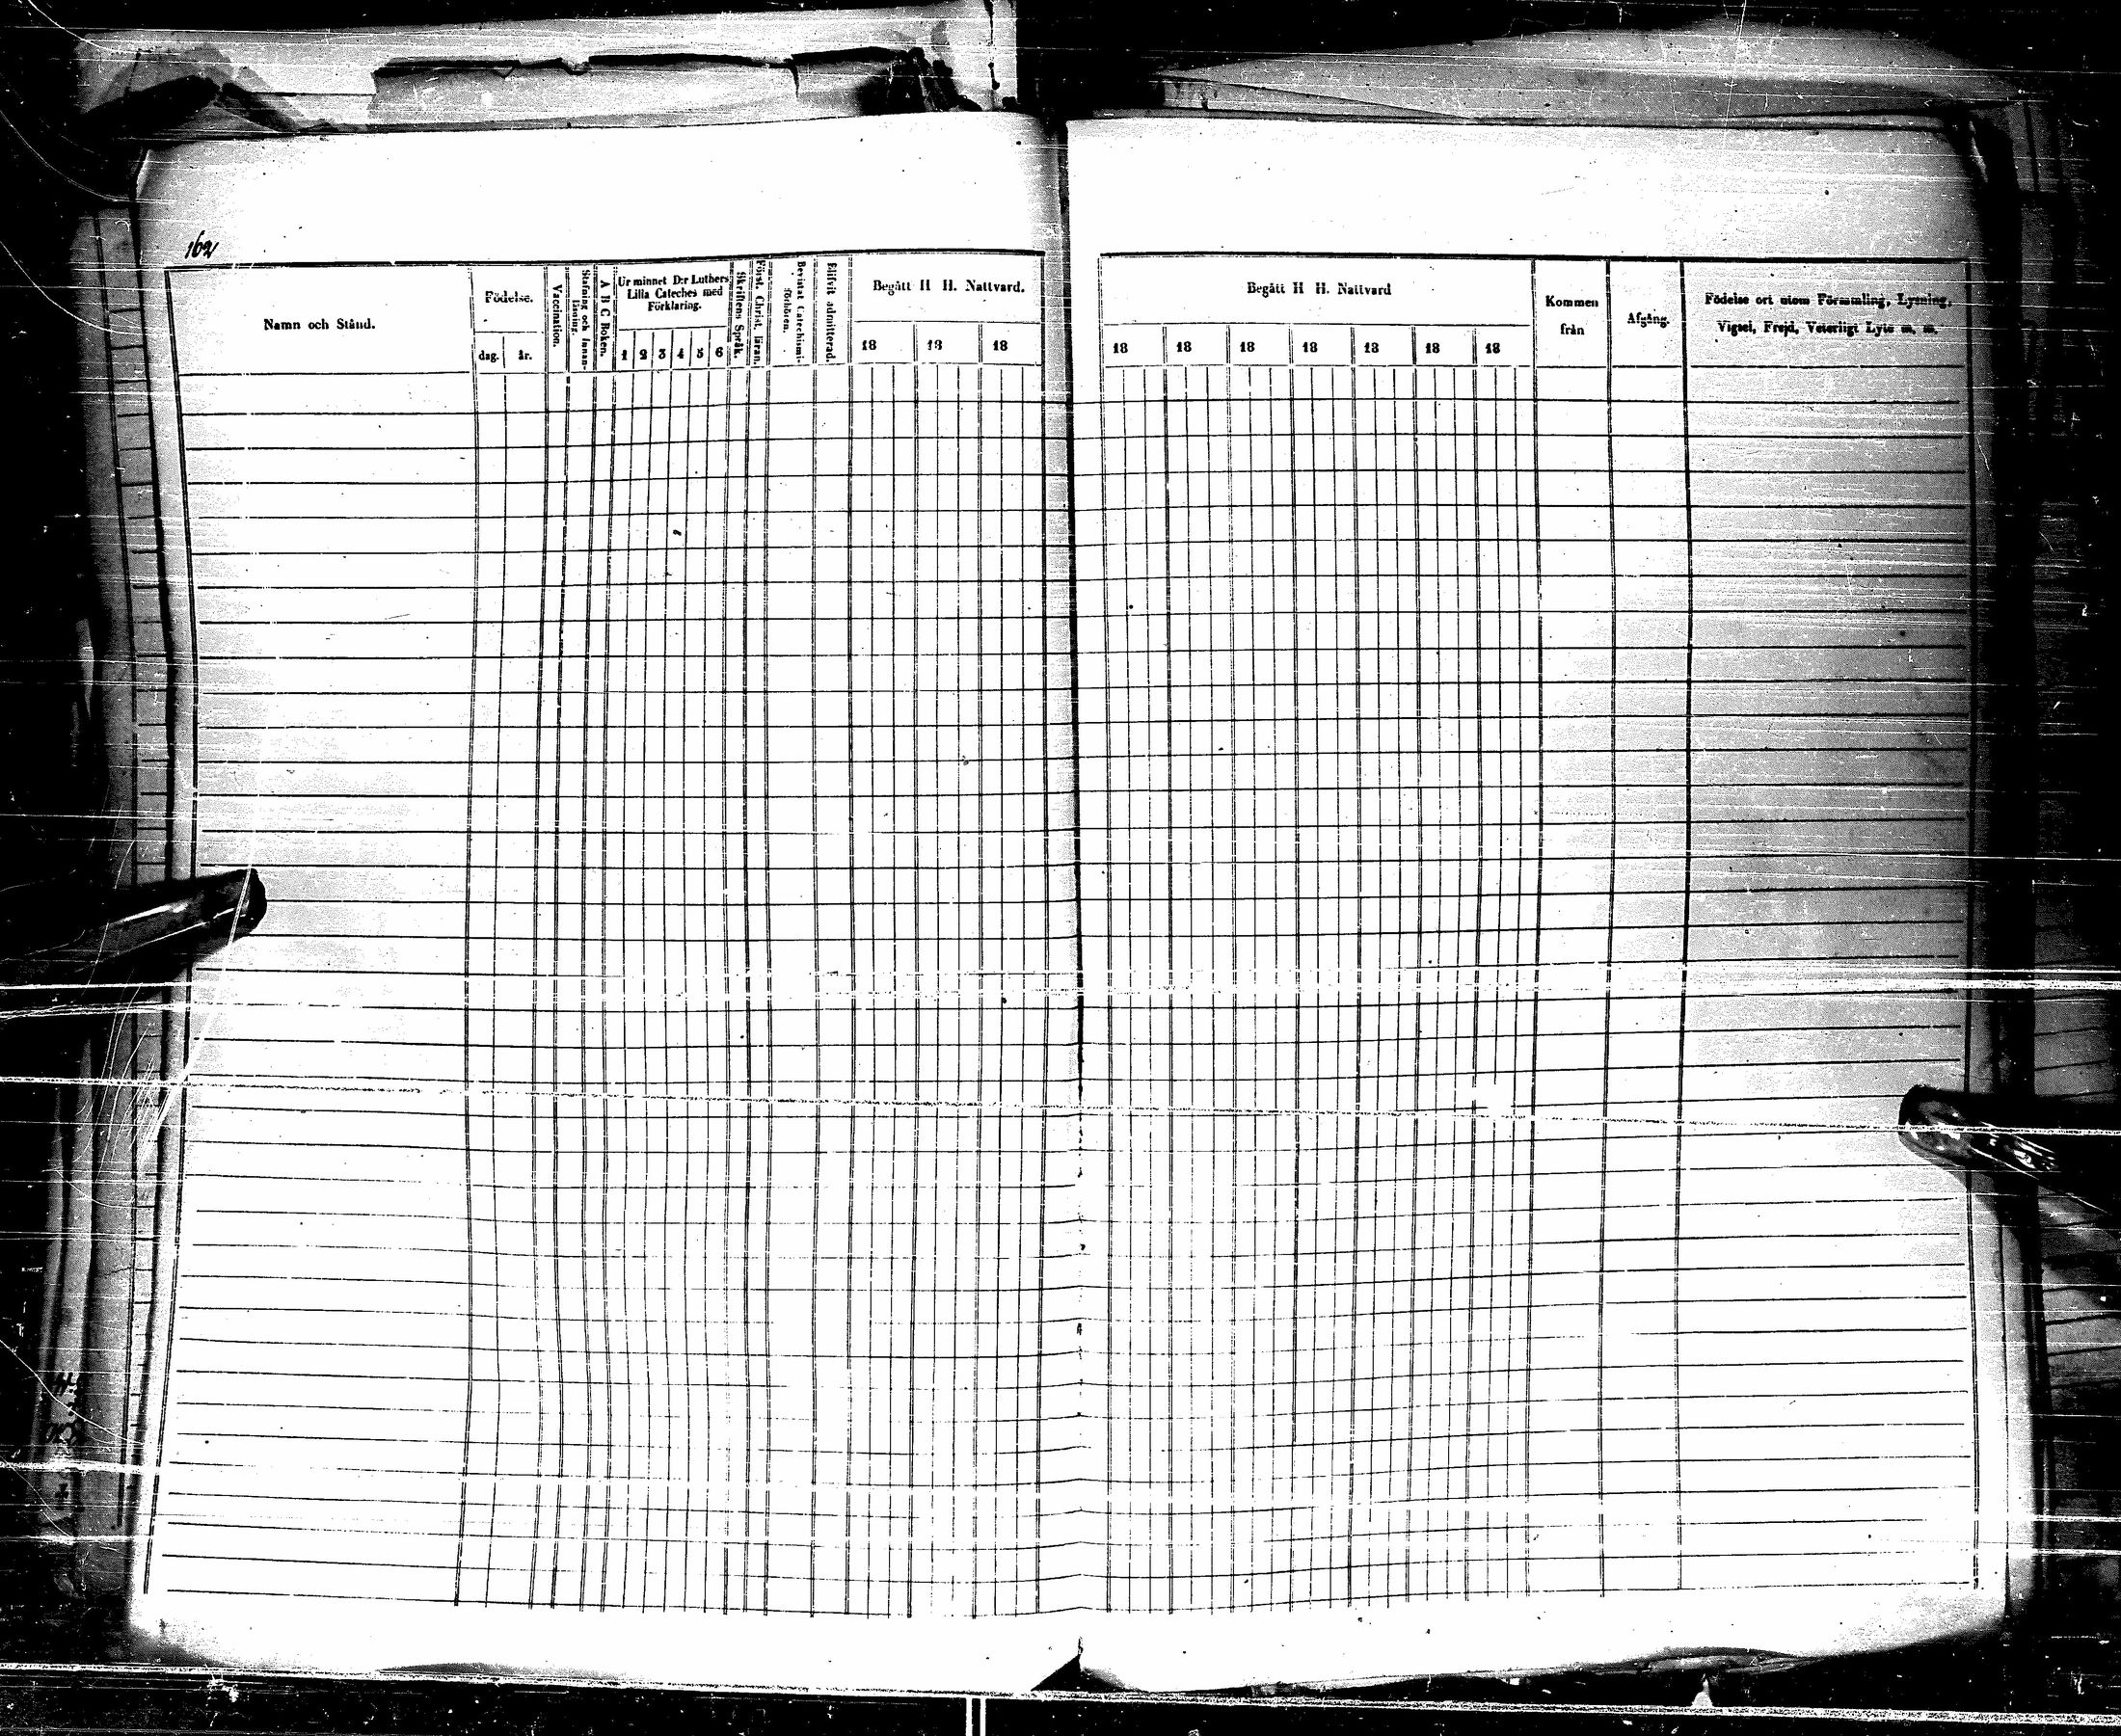 162
Namn och Stånd.
Födelse.
dag. år.
Vaccination.
Stafning och Innan-
läsning.
A B C Boken.
Ur minnet D:r Luthers
Lilla Cateches med
Förklaring.
1 2 3 4 5 6
Skriftens Språk.
Först. Christ. läran.
Bevistat Catechismi-
förhören.
Blifvit admitterad.
Begått H H. Nattvard.
18 18 18
Begått H H. Nattvard
18 18 18 18 18 18 18
Kommen
från
Afgång.
Födelse ort utom Församling, Lysning,
Vigsel, Frejd, Veterligt Lyte m. m.